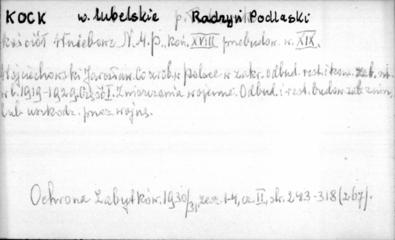 KOCK w. lubelskie p. Radzyń Podlaski
kościół Wniebowz. N.M.P., kon. XVIII przebudow. w. XIX.
Wojciechowski Jarosław. Co zrobiono w Polsce w zakr. odbud. rest. i kons. zab. szt.
w l. 1919-1929. Cz. I. Zniszczenia wojenne. Odbud. i rest. budow. zab. zniszcz.
lub uszkodz. przez wojnę.
Ochrona Zabytków. 1930/31, zesz. 1-4, cz. II, str. 243-318 (267).